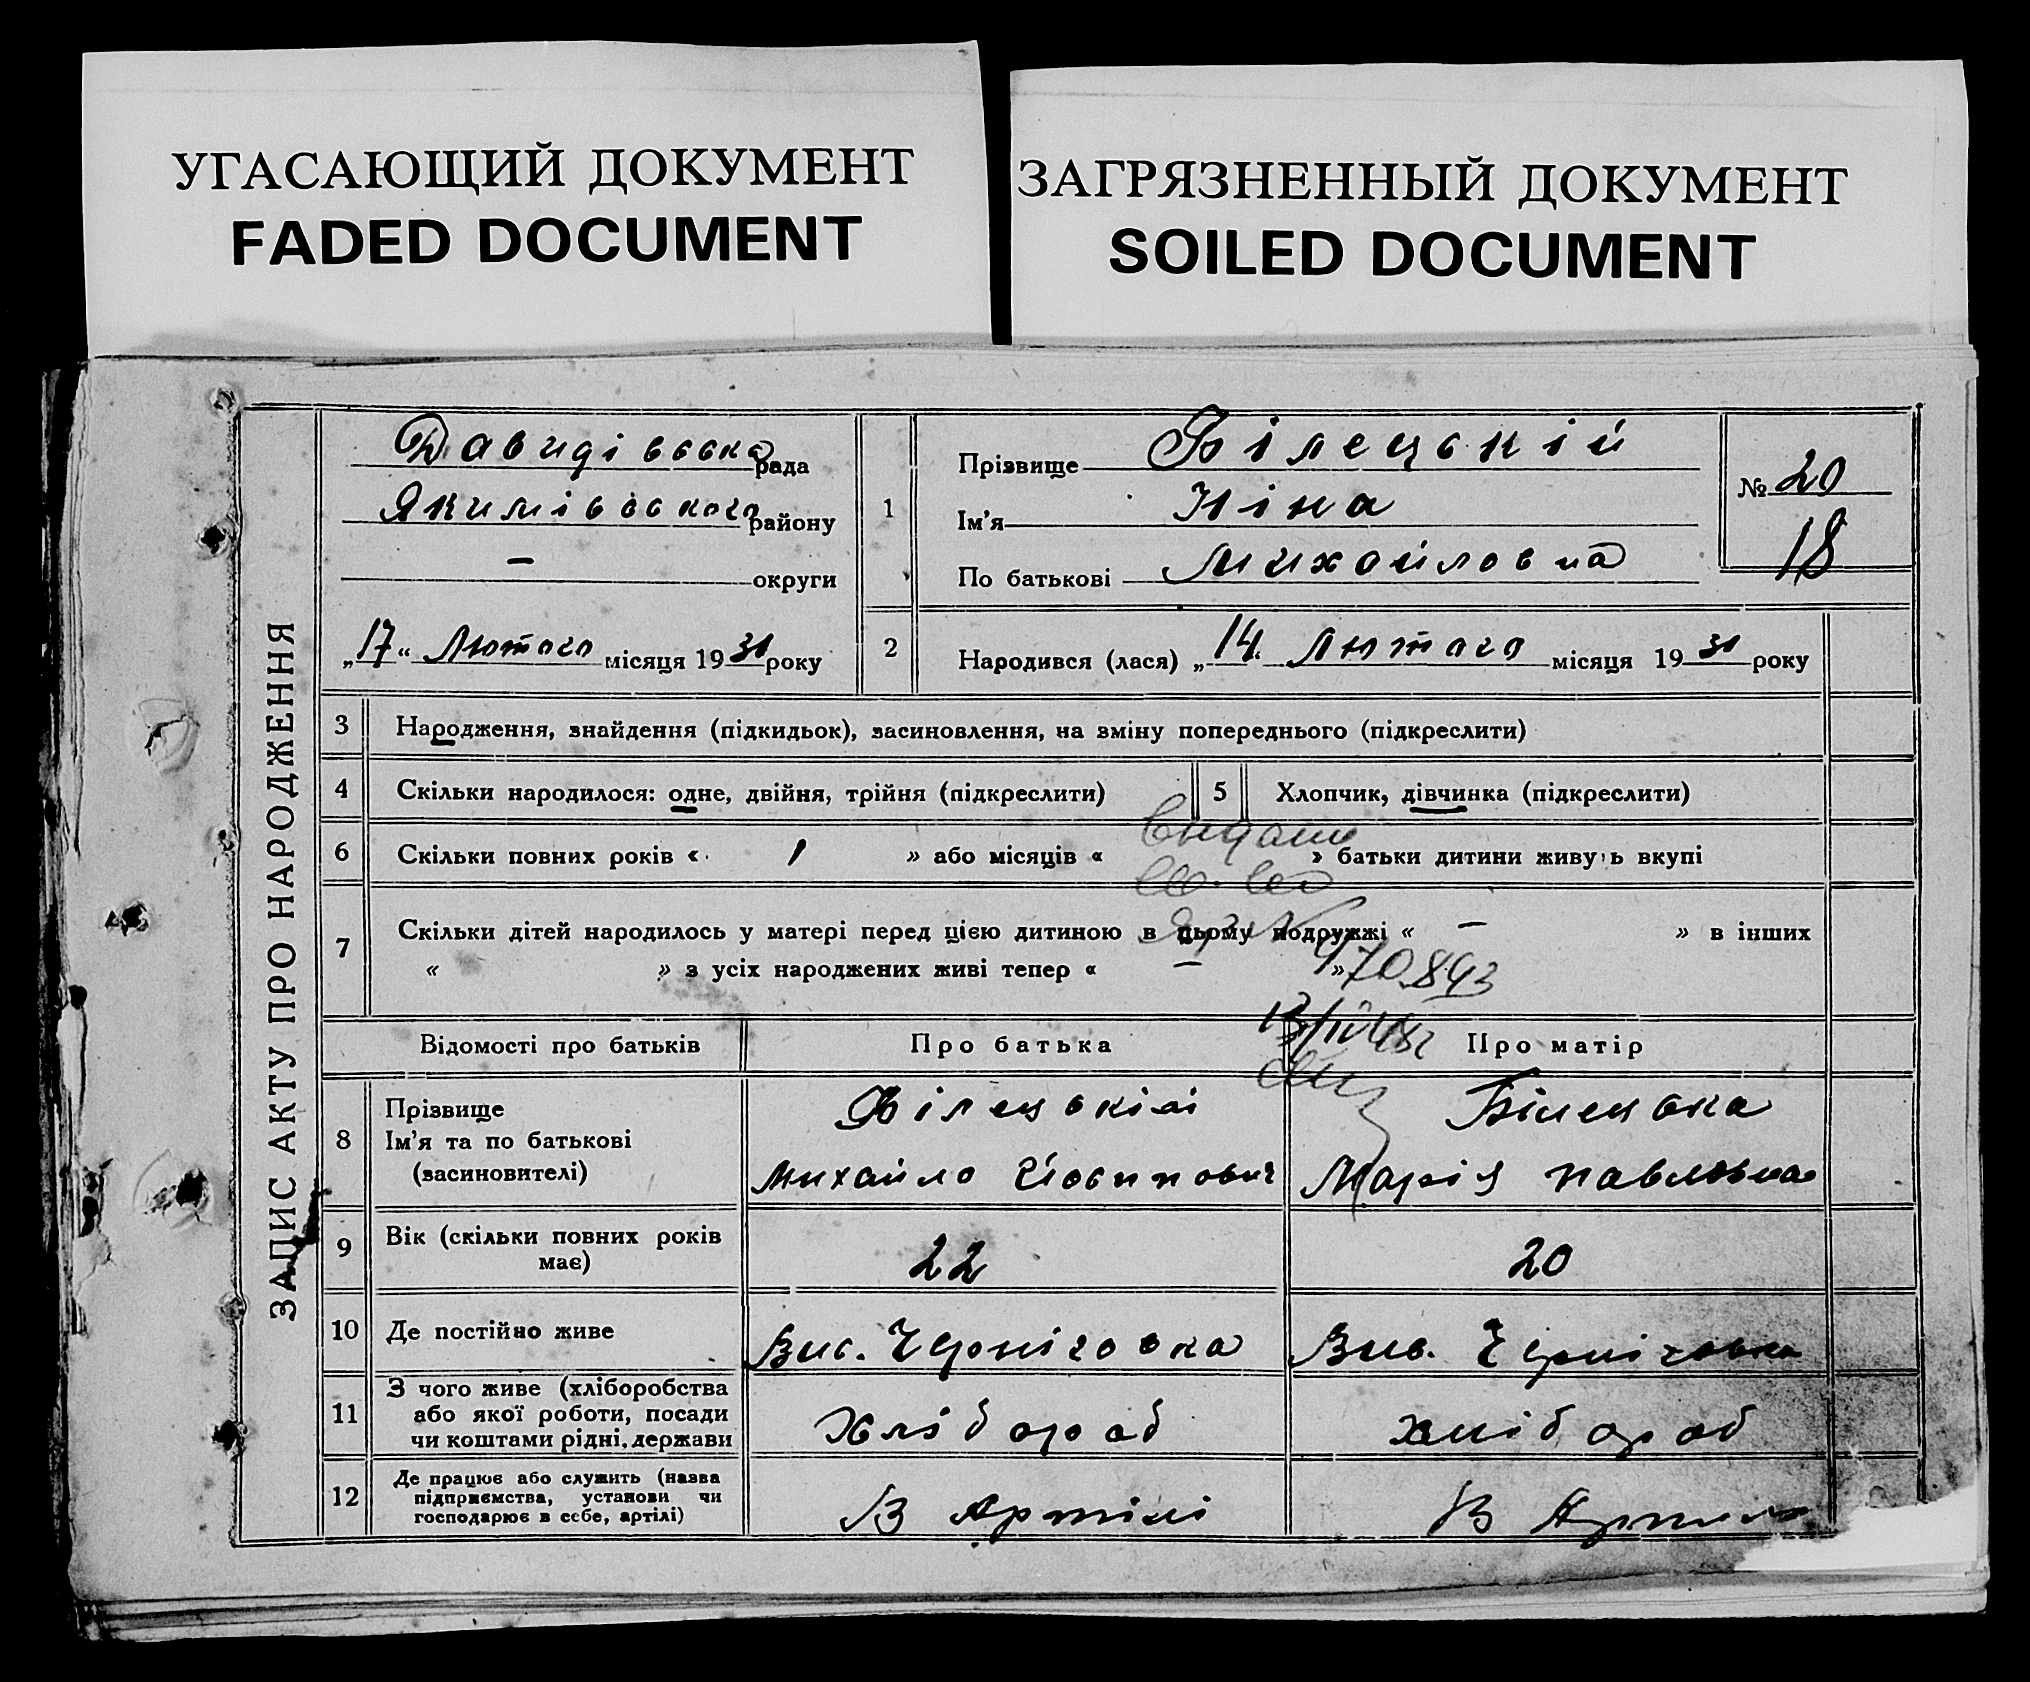 УГАСАЮЩИЙ ДОКУМЕНТ
FADED DOCUMENT
ЗАГРЯЗНЕННЫЙ ДОКУМЕНТ
SOILED DOCUMENT
ЗАПИС АКТУ ПРО НАРОДЖЕННЯ
Давидівська рада
Якимівського району
— округи
„17“ Лютого місяця 1931 року
1
Прізвище Білецький
Ім'я Ніна
По батькові Михайловна
№ 20
18
2
Народився (лася) „14“ Лютого місяця 1931 року
3 Народження, знайдення (підкидьок), засиновлення, на зміну попереднього (підкреслити)
4 Скільки народилося: одне, двійня, трійня (підкреслити)
5 Хлопчик, дівчинка (підкреслити)
6 Скільки повних років « 1 » або місяців « » батьки дитини живуть вкупі
7 Скільки дітей народилось у матері перед цією дитиною в цьому подружжі « — » в інших
« » з усіх народжених живі тепер « — »
470893
Відомості про батьків Про батька Про матір
8
Прізвище
Ім'я та по батькові
(засиновителі)
Білецькій
Михайло Йосипович
Білецька
Марія Павловна
9
Вік (скільки повних років
має)
22
20
10 Де постійно живе
Вис. Черніговка
Вис. Черніговка
11
З чого живе (хліборобства
або якої роботи, посади
чи коштами рідні, держави
Хлібороб
хлібороб
12
Де працює або служить (назва
підприємства, установи чи
господарює в себе, артілі)
В Артілі
В Артілі